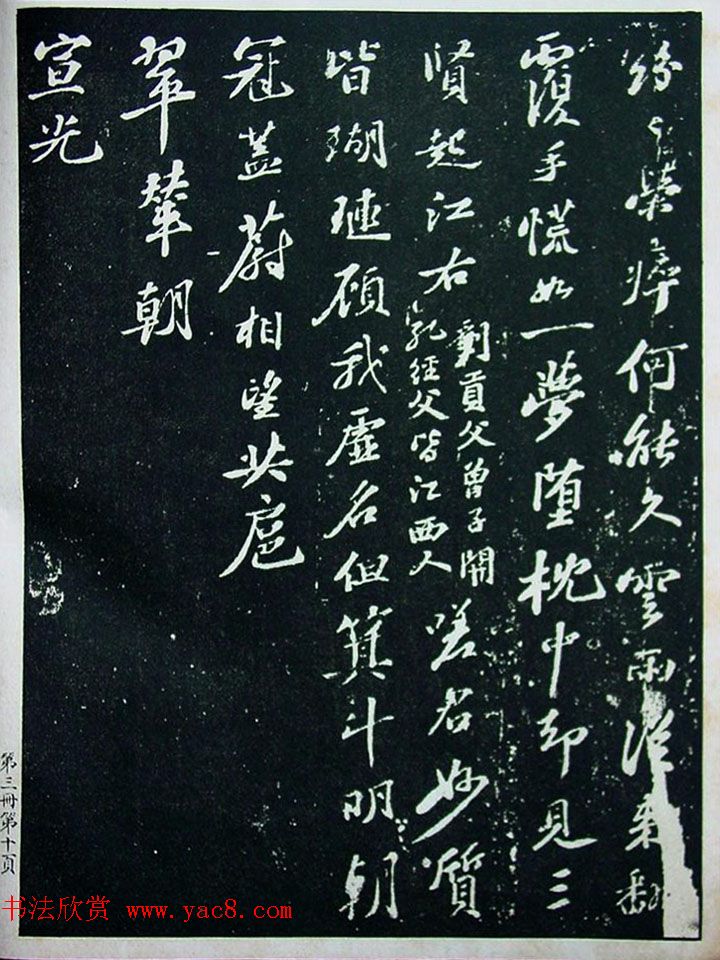 紛〻榮瘁何能久雲雨從来翻
覆手慌如一夢墮枕中却見三
賢起江右劉貢父曾子開孔經父皆江西人嗟君妙質
皆瑚璉顧我虛名但箕斗明朝
冠蓋蔚相望共扈
翠輦朝
宣光
第三冊第十頁
书法欣赏 www.yac8.com